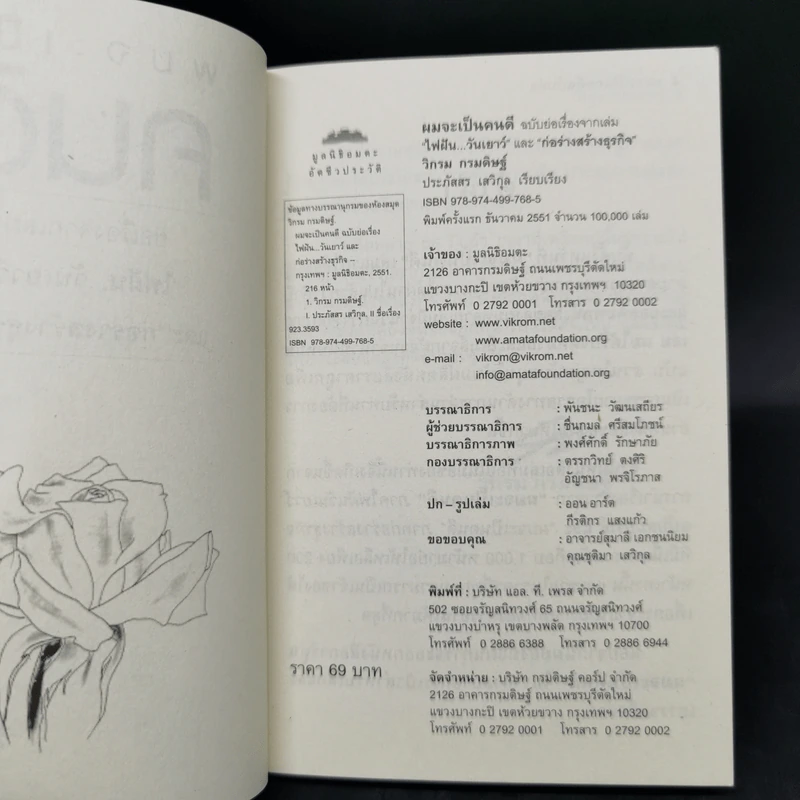 มูลนิธิอมตะ
อัตชีวประวัติ
ข้อมูลทางบรรณานุกรมของห้องสมุด
วิกรม กรมดิษฐ์.
ผมจะเป็นคนดี ฉบับย่อเรื่อง
ไฟฝัน...วันเยาว์ และ
ก่อร่างสร้างธุรกิจ --
กรุงเทพฯ : มูลนิธิอมตะ, 2551.
216 หน้า
1. วิกรม กรมดิษฐ์.
I. ประภัสสร เสวิกุล, II ชื่อเรื่อง
923.3593
ISBN 978-974-499-768-5
ราคา 69 บาท
ผมจะเป็นคนดี ฉบับย่อเรื่องจากเล่ม
"ไฟฝัน...วันเยาว์" และ "ก่อร่างสร้างธุรกิจ"
วิกรม กรมดิษฐ์
ประภัสสร เสวิกุล เรียบเรียง
ISBN 978-974-499-768-5
พิมพ์ครั้งแรก ธันวาคม 2551 จำนวน 100,000 เล่ม
เจ้าของ : มูลนิธิอมตะ
2126 อาคารกรมดิษฐ์ ถนนเพชรบุรีตัดใหม่
แขวงบางกะปิ เขตห้วยขวาง กรุงเทพฯ 10320
โทรศัพท์ 0 2792 0001 โทรสาร 0 2792 0002
website : www.vikrom.net
www.amatafoundation.org
e-mail : vikrom@vikrom.net
info@amatafoundation.org
บรรณาธิการ : พันชนะ วัฒนเสถียร
ผู้ช่วยบรรณาธิการ : ชื่นกมล ศรีสมโภชน์
บรรณาธิการภาพ : พงศ์ศักดิ์ รักษาภัย
กองบรรณาธิการ : ตรรกวิทย์ ดงศิริ
อัญชนา พรจิโรภาส
ปก – รูปเล่ม : ออน อาร์ต
กีรติกร แสงแก้ว
ขอขอบคุณ : อาจารย์สุมาลี เอกชนนิยม
คุณชุติมา เสวิกุล
พิมพ์ที่ : บริษัท แอล. ที. เพรส จำกัด
502 ซอยจรัญสนิทวงศ์ 65 ถนนจรัญสนิทวงศ์
แขวงบางบำหรุ เขตบางพลัด กรุงเทพฯ 10700
โทรศัพท์ 0 2886 6388 โทรสาร 0 2886 6944
จัดจำหน่าย : บริษัท กรมดิษฐ์ คอร์ป จำกัด
2126 อาคารกรมดิษฐ์ ถนนเพชรบุรีตัดใหม่
แขวงบางกะปิ เขตห้วยขวาง กรุงเทพฯ 10320
โทรศัพท์ 0 2792 0001 โทรสาร 0 2792 0002